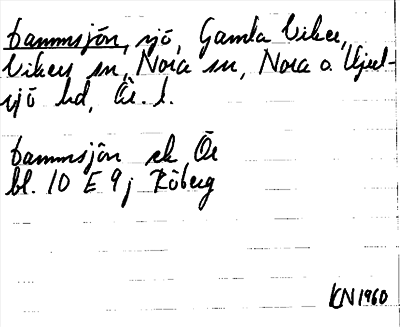 Dammsjön, sjö, Gamla Viker,
Vikers sn, Nora sn, Nora o. Hjul-
sjö hd, Ör. l.
Dammsjön ek Ör
bl. 10 E 9j Röberg
KN 1960